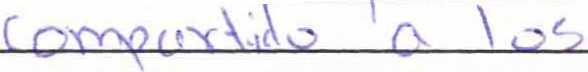 compartido a los